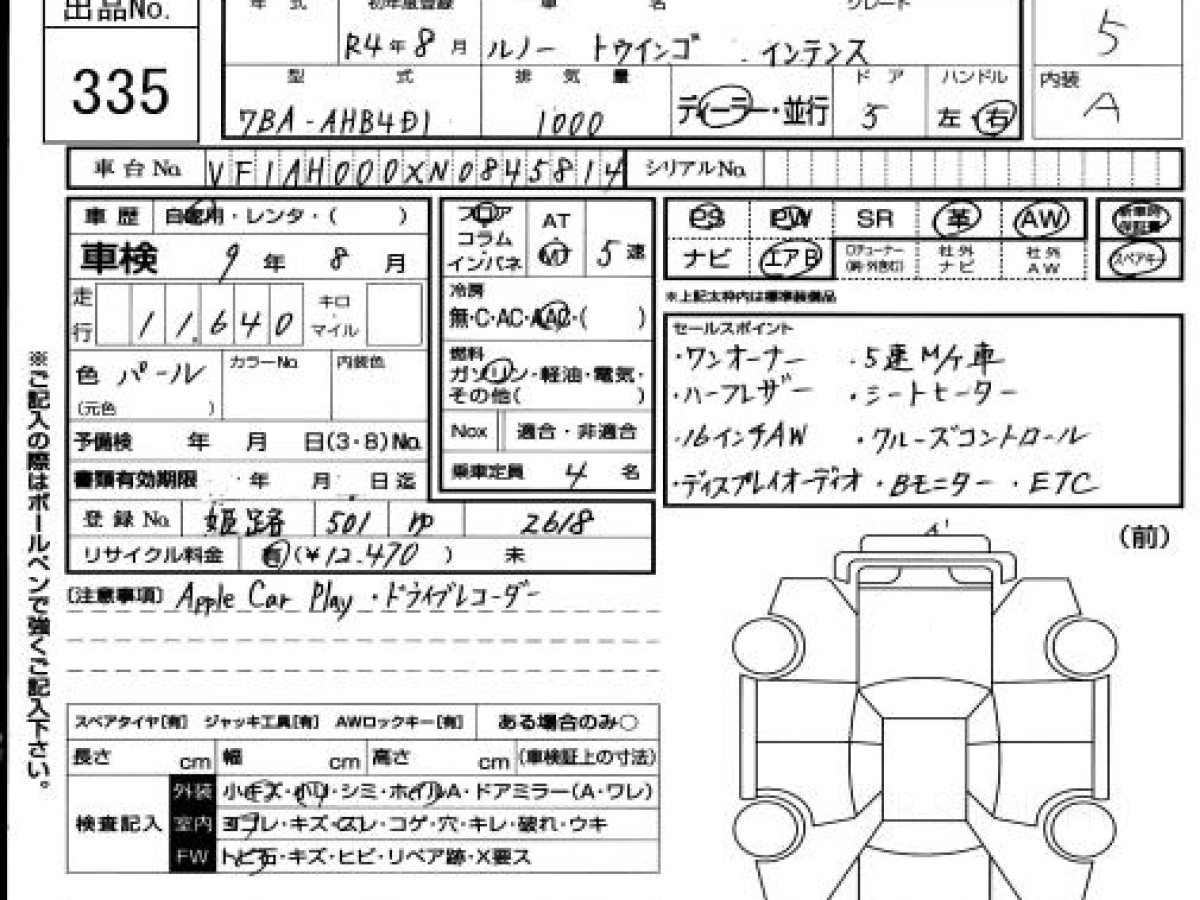 出品No. 年式 初年度登録 車名 グレード 5
335 R4年8月 ルノー トゥインゴ インテンス
型式 排気量 ドア ハンドル 内装
7BA-AHB4D1 1000 ディーラー・並行 5 左・右 A
車台No. VF1AH000XN0845814 シリアルNo.
車歴 自家用・レンタ・( )
車検 9年8月
走行 11,640 キロ・マイル
色 パール カラーNo. 内装色
(元色 )
予備検 年 月 日(3・8)No.
書類有効期限 年 月 日迄
登録No. 姫路 501 ゆ 2618
リサイクル料金 有(¥12,470 ) 未
フロア・コラム・インパネ AT・MT 5速
冷房
無・C・AC・AAC・( )
燃料
ガソリン・軽油・電気・
その他( )
Nox 適合・非適合
乗車定員 4名
PS PW SR 革 AW 新車時保証書
ナビ エアB ロチューナー 社外ナビ 社外AW スペアキー
※上記太枠内は標準装備品
セールスポイント
・ワンオーナー ・5速M/T車
・ハーフレザー ・シートヒーター
・16インチAW ・クルーズコントロール
・ディスプレイオーディオ ・Bモニター ・ETC
〔注意事項〕 Apple Car Play ・ドライブレコーダー
スペアタイヤ[有] ジャッキ工具[有] AWロックキー[有] ある場合のみ○
長さ cm 幅 cm 高さ cm (車検証上の寸法)
検査記入
外装 小キズ・小凹・シミ・ホイルA・ドアミラー(A・ワレ)
室内 ヨゴレ・キズ・スレ・コゲ・穴・キレ・破れ・ウキ
FW トビ石・キズ・ヒビ・リペア跡・X要ス
(前)
A'
※ご記入の際はボールペンで強くご記入下さい。